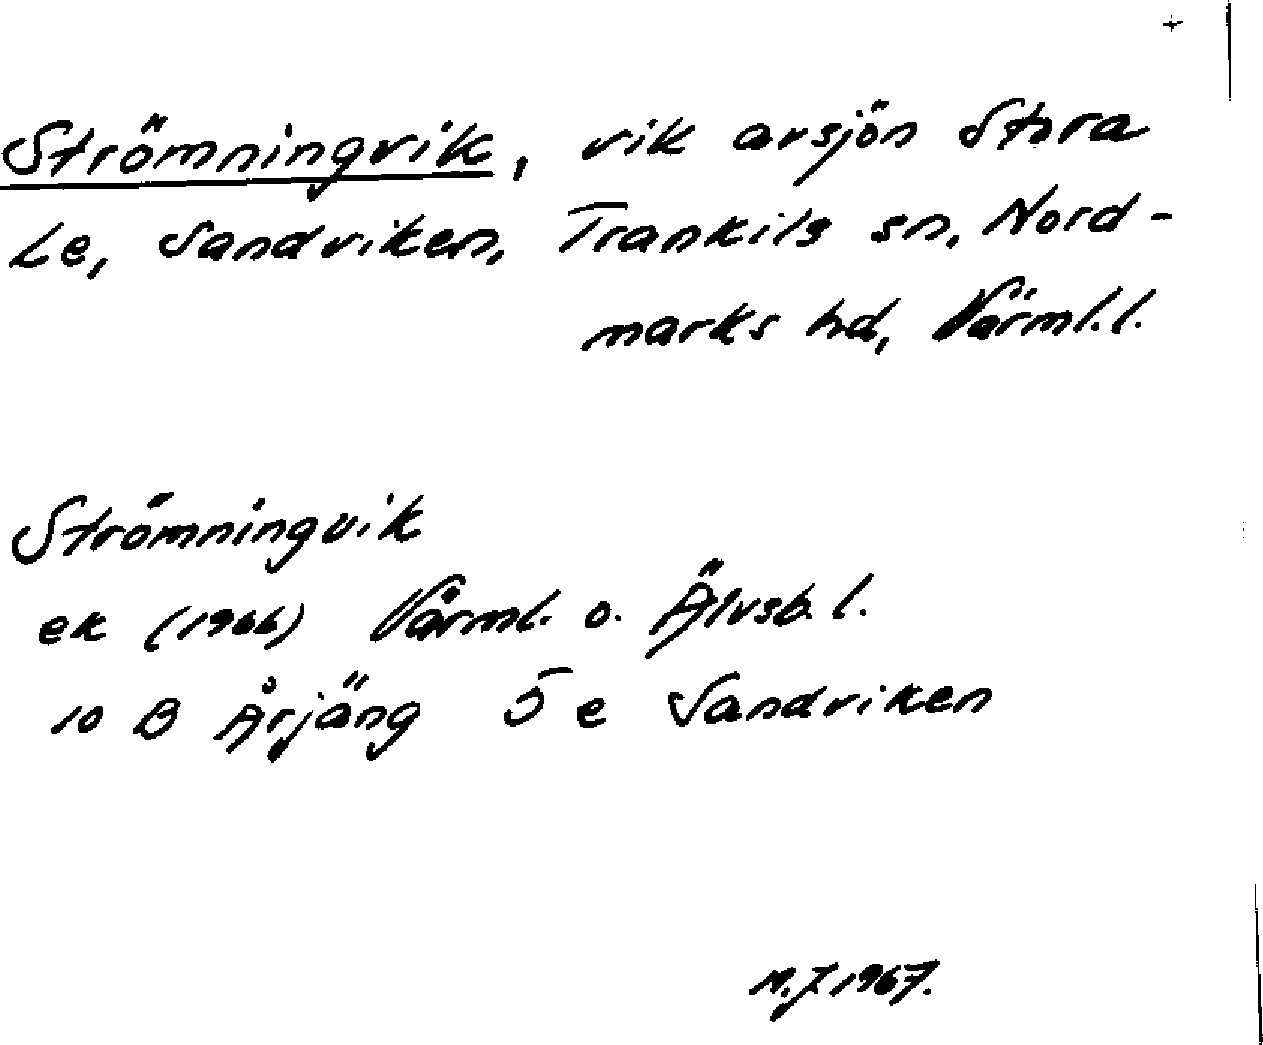 Strömningvik, vik av sjön Stora
Le, Sandviken, Trankils sn, Nord-
marks hd, Värml. l.
Strömningvik
ek (1966) Värml. o. Älvsb. l.
10 B Årjäng 5 e Sandviken
M. J. 1967.